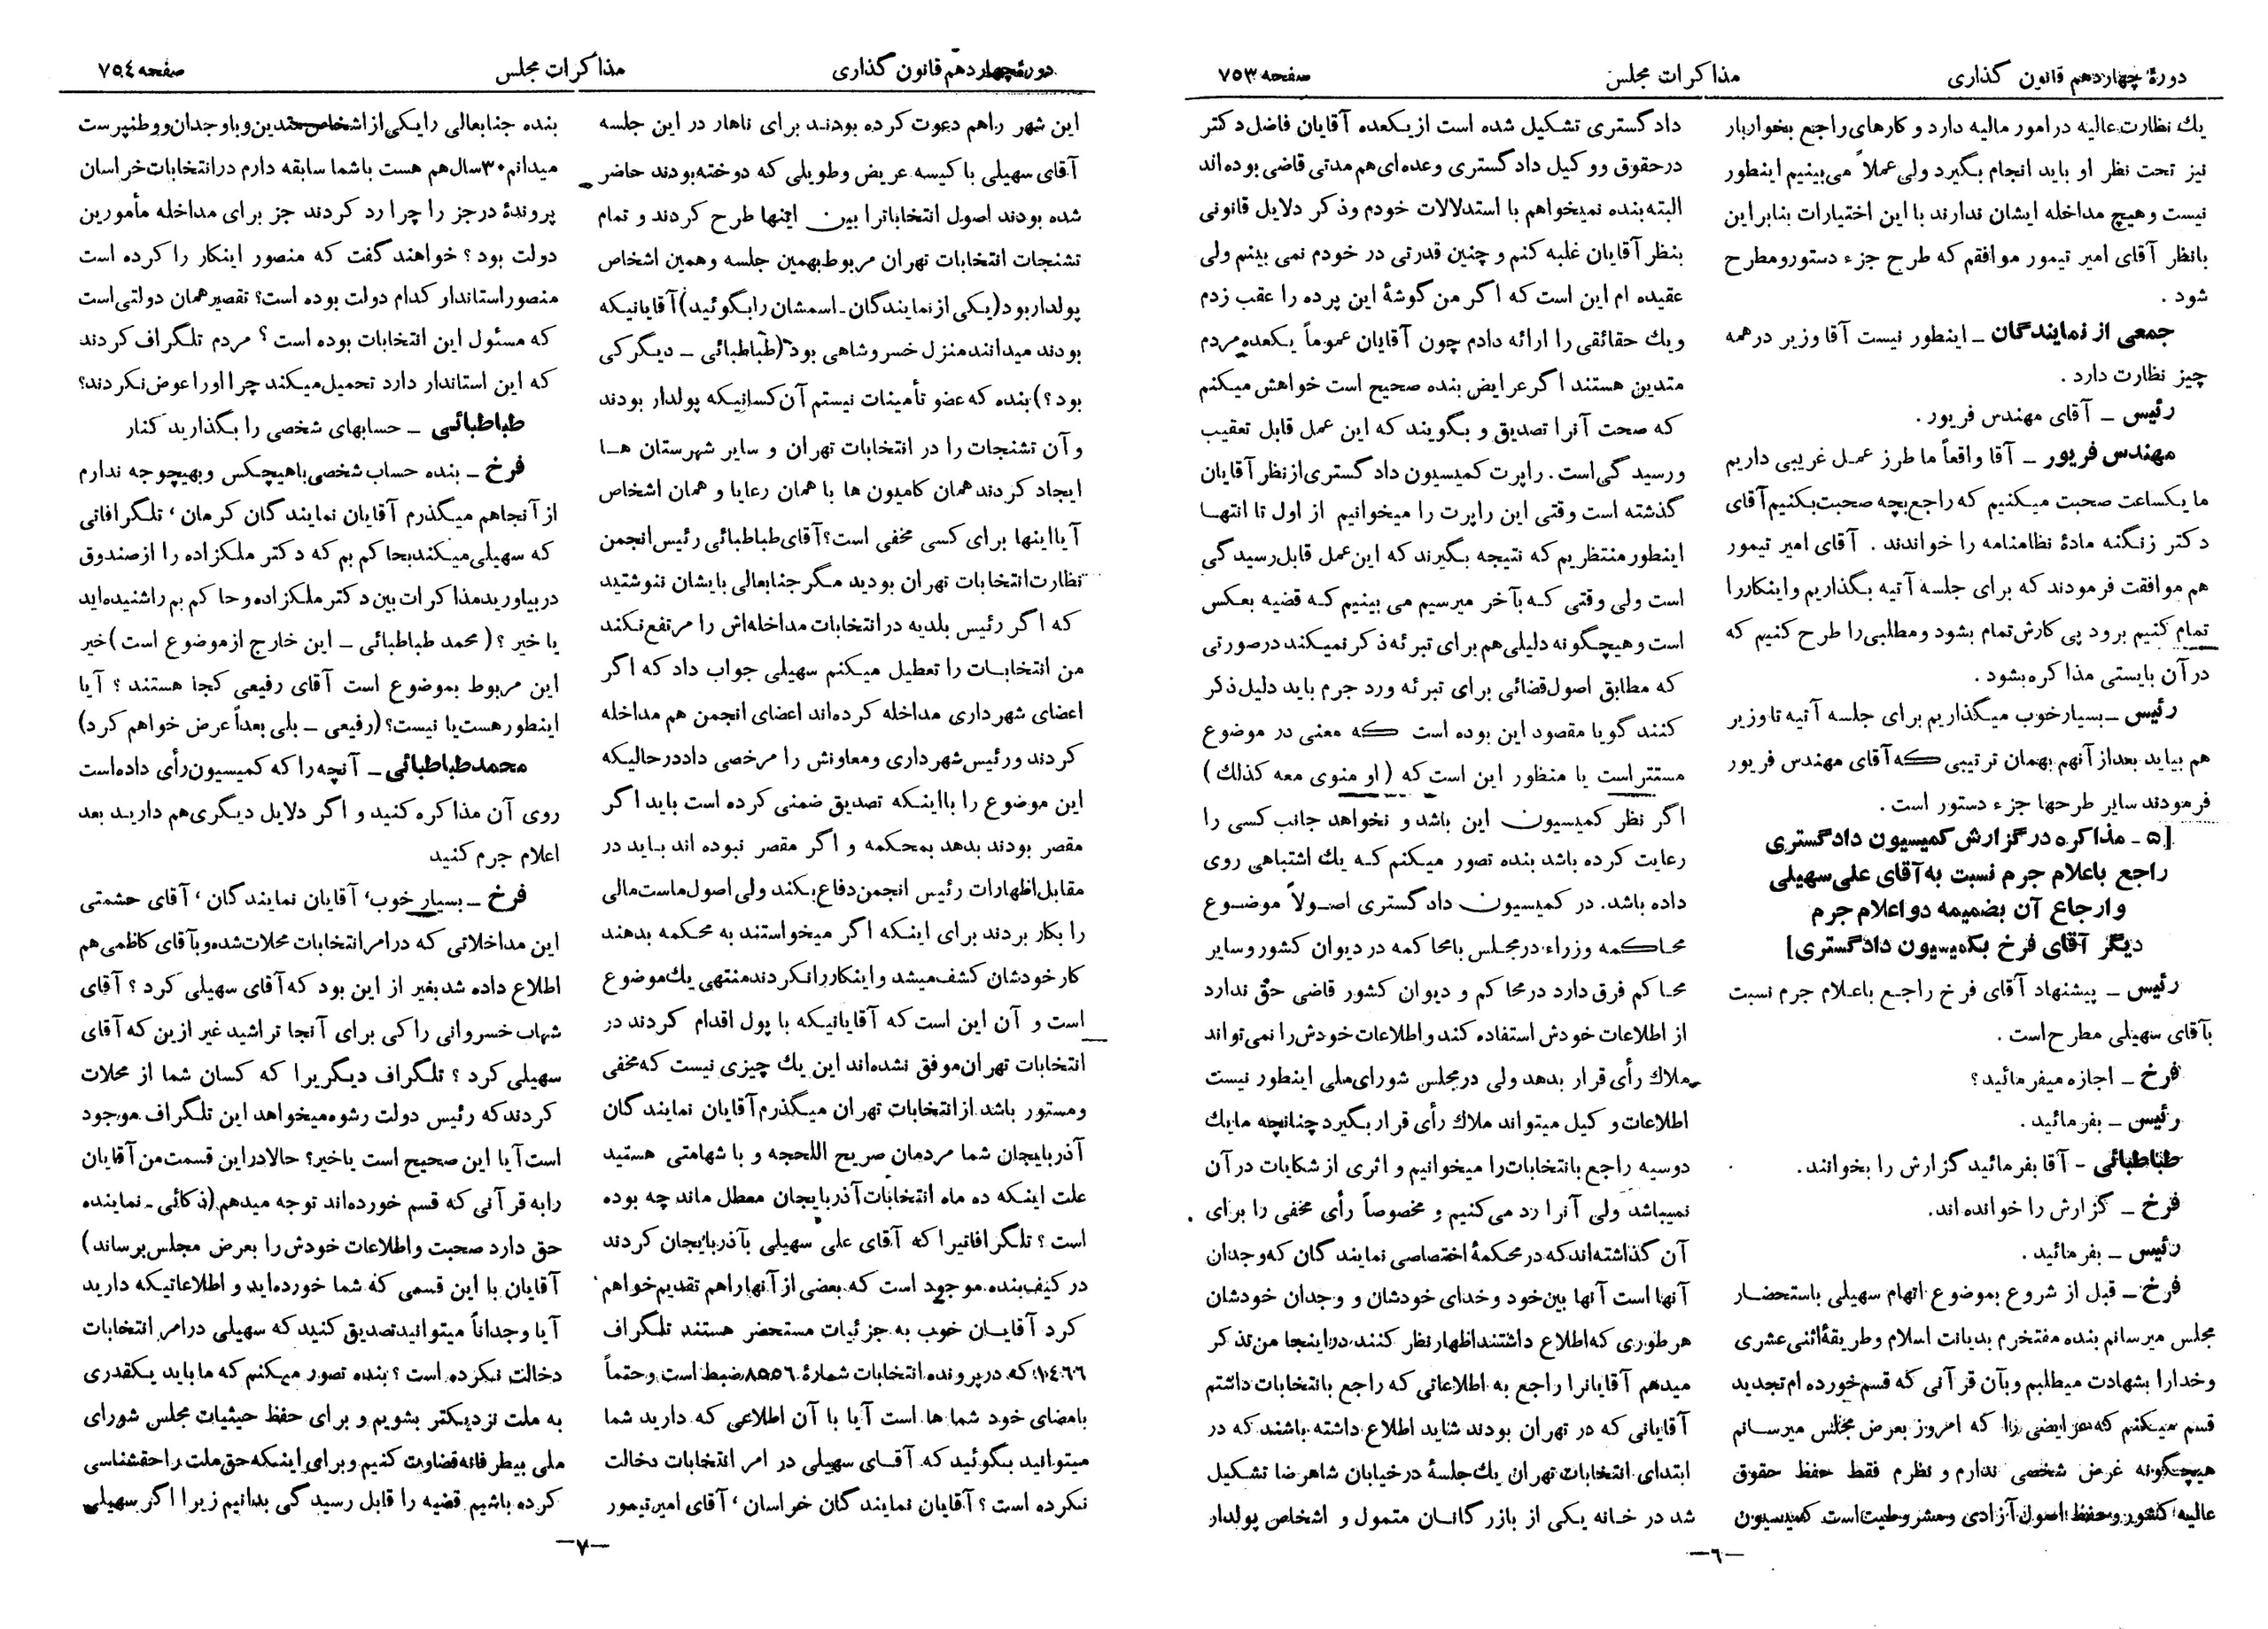 دورهٔ چهاردهم قانون گذاری
مذاکرات مجلس
صفحه ۷۵۳
یك نظارت عالیه در امور مالیه دارد و کارهای راجع بخواربار
نیز تحت نظر او باید انجام بگیرد ولی عملاً می‌بینیم اینطور
نیست و هیچ مداخله ایشان ندارند با این اختیارات بنابراین
بانظر آقای امیر تیمور موافقم که طرح جزء دستور ومطرح
شود .
جمعی از نمایندگان ـ اینطور نیست آقا وزیر در همه
چیز نظارت دارد .
رئیس ـ آقای مهندس فریور .
مهندس فریور ـ آقا واقعاً ما طرز عمل غریبی داریم
ما یکساعت صحبت میکنیم که راجع بچه صحبت بکنیم آقای
دکتر زنگنه مادهٔ نظامنامه را خواندند . آقای امیر تیمور
هم موافقت فرمودند که برای جلسه آتیه بگذاریم و اینکار را
تمام کنیم برود پی کارش تمام بشود ومطلبی را طرح کنیم که
در آن بایستی مذاکره بشود .
رئیس ـ بسیار خوب میگذاریم برای جلسه آتیه تا وزیر
هم بیاید بعد از آنهم بهمان ترتیبی که آقای مهندس فریور
فرمودند سایر طرحها جزء دستور است .
[۵ ـ مذاکره در گزارش کمیسیون دادگستری
راجع باعلام جرم نسبت به آقای علی سهیلی
و ارجاع آن بضمیمه دو اعلام جرم
دیگر آقای فرخ بکمیسیون دادگستری]
رئیس ـ پیشنهاد آقای فرخ راجع باعلام جرم نسبت
بآقای سهیلی مطرح است .
فرخ ـ اجازه میفرمائید؟
رئیس ـ بفرمائید .
طباطبائی ـ آقا بفرمائید گزارش را بخوانند.
فرخ ـ گزارش را خوانده اند.
رئیس ـ بفرمائید .
فرخ ـ قبل از شروع بموضوع اتهام سهیلی باستحضار
مجلس میرسانم بنده مفتخرم بدیانت اسلام وطریقهٔ اثنی عشری
وخدا را بشهادت میطلبم و بآن قرآنی که قسم خورده ام تجدید
قسم میکنم که عرایضی را که امروز بعرض مجلس میرسانم
هیچگونه غرض شخصی ندارم و نظرم فقط حفظ حقوق
عالیه کشور وحفظ اصول آزادی ومشروطیت است کمیسیون
دادگستری تشکیل شده است از یکعده آقایان فاضل دکتر
در حقوق و وکیل دادگستری وعده‌ای هم مدتی قاضی بوده‌اند
البته بنده نمیخواهم با استدلالات خودم وذکر دلایل قانونی
بنظر آقایان غلبه کنم و چنین قدرتی در خودم نمی بینم ولی
عقیده ام این است که اگر من گوشهٔ این پرده را عقب زدم
ویك حقائقی را ارائه دادم چون آقایان عموماً یکعده مردم
متدین هستند اگر عرایض بنده صحیح است خواهش میکنم
که صحت آنرا تصدیق و بگویند که این عمل قابل تعقیب
ورسیدگی است . راپرت کمیسیون دادگستری از نظر آقایان
گذشته است وقتی این راپرت را میخوانیم از اول تا انتها
اینطور منتظریم که نتیجه بگیرند که این عمل قابل رسیدگی
است ولی وقتی که بآخر میرسیم می بینیم که قضیه بعکس
است وهیچگونه دلیلی هم برای تبرئه ذکر نمیکند درصورتی
که مطابق اصول قضائی برای تبرئه ورد جرم باید دلیل ذکر
کنند گویا مقصود این بوده است که معنی در موضوع
مستتر است یا منظور این است که ( او منوی معه کذلك )
اگر نظر کمیسیون این باشد و نخواهد جانب کسی را
رعایت کرده باشد بنده تصور میکنم که یك اشتباهی روی
داده باشد. در کمیسیون دادگستری اصولاً موضوع
محاکمه وزراء در مجلس بامحاکمه در دیوان کشور وسایر
محاکم فرق دارد در محاکم و دیوان کشور قاضی حق ندارد
از اطلاعات خودش استفاده کند و اطلاعات خودش را نمی تواند
ملاك رأی قرار بدهد ولی در مجلس شورای ملی اینطور نیست
اطلاعات وکیل میتواند ملاك رأی قرار بگیرد چنانچه ما یك
دوسیه راجع بانتخابات را میخوانیم و اثری از شکایات در آن
نمیباشد ولی آنرا رد می‌کنیم و مخصوصاً رأی مخفی را برای
آن گذاشته‌اند که در محکمهٔ اختصاصی نمایندگان که وجدان
آنها است آنها بین خود وخدای خودشان و وجدان خودشان
هر طوری که اطلاع داشتند اظهار نظر کنند. در اینجا من تذکر
میدهم آقایانرا راجع به اطلاعاتی که راجع بانتخابات داشتم
آقایانی که در تهران بودند شاید اطلاع داشته باشند که در
ابتدای انتخابات تهران یك جلسهٔ در خیابان شاهرضا تشکیل
شد در خانه یکی از بازرگانان متمول و اشخاص پولدار
ـ٦ـ
دورهٔ چهاردهم قانون گذاری
مذاکرات مجلس
صفحه ۷۵٤
این شهر را هم دعوت کرده بودند برای ناهار در این جلسه
آقای سهیلی با کیسه عریض وطویلی که دوخته بودند حاضر
شده بودند اصول انتخاباترا بین اینها طرح کردند و تمام
تشنجات انتخابات تهران مربوط بهمین جلسه وهمین اشخاص
پولدار بود (یکی از نمایندگان ـ اسمشان را بگوئید) آقایانیکه
بودند میدانند منزل خسروشاهی بود (طباطبائی ـ دیگر کی
بود؟) بنده که عضو تأمینات نیستم آن کسانیکه پولدار بودند
و آن تشنجات را در انتخابات تهران و سایر شهرستان ها
ایجاد کردند همان کامیون ها با همان رعایا و همان اشخاص
آیا اینها برای کسی مخفی است؟ آقای طباطبائی رئیس انجمن
نظارت انتخابات تهران بودید مگر جنابعالی بایشان ننوشتید
که اگر رئیس بلدیه در انتخابات مداخله‌اش را مرتفع نکند
من انتخابات را تعطیل میکنم سهیلی جواب داد که اگر
اعضای شهرداری مداخله کرده‌اند اعضای انجمن هم مداخله
کردند ورئیس شهرداری ومعاونش را مرخصی داد در حالیکه
این موضوع را بااینکه تصدیق ضمنی کرده است باید اگر
مقصر بودند بدهد بمحکمه و اگر مقصر نبوده اند باید در
مقابل اظهارات رئیس انجمن دفاع بکند ولی اصول ماست مالی
را بکار بردند برای اینکه اگر میخواستند به محکمه بدهند
کار خودشان کشف میشد و اینکار را نکردند منتهی یك موضوع
است و آن این است که آقایانیکه با پول اقدام کردند در
انتخابات تهران موفق نشده‌اند این یك چیزی نیست که مخفی
ومستور باشد از انتخابات تهران میگذرم آقایان نمایندگان
آذربایجان شما مردمان صریح اللحجه و با شهامتی هستید
علت اینکه ده ماه انتخابات آذربایجان معطل ماند چه بوده
است ؟ تلگرافاتیرا که آقای علی سهیلی بآذربایجان کردند
در کیف بنده موجود است که بعضی از آنها را هم تقدیم خواهم
کرد آقایان خوب به جزئیات مستحضر هستند تلگراف
۱٤٦۰٦ که در پرونده انتخابات شمارهٔ ۸۵۵٦ ضبط است وحتماً
بامضای خود شماها است آیا با آن اطلاعی که دارید شما
میتوانید بگوئید که آقای سهیلی در امر انتخابات دخالت
نکرده است ؟ آقایان نمایندگان خراسان ، آقای امیرتیمور
بنده جنابعالی را یکی از اشخاص متدین و باوجدان و وطنپرست
میدانم ۳۰ سال هم هست باشما سابقه دارم در انتخابات خراسان
پروندهٔ درجز را چرا رد کردند جز برای مداخله مأمورین
دولت بود ؟ خواهند گفت که منصور اینکار را کرده است
منصور استاندار کدام دولت بوده است؟ تقصیر همان دولتی است
که مسئول این انتخابات بوده است ؟ مردم تلگراف کردند
که این استاندار دارد تحمیل میکند چرا اورا عوض نکردند؟
طباطبائی ـ حسابهای شخصی را بگذارید کنار
فرخ ـ بنده حساب شخصی باهیچکس وبهیچوجه ندارم
از آنجاهم میگذرم آقایان نمایندگان کرمان ، تلگرافاتی
که سهیلی میکند بحاکم بم که دکتر ملکزاده را از صندوق
دربیاورید مذاکرات بین دکتر ملکزاده و حاکم بم را شنیده‌اید
یا خیر ؟ ( محمد طباطبائی ـ این خارج از موضوع است ) خیر
این مربوط بموضوع است آقای رفیعی کجا هستند ؟ آیا
اینطور هست یا نیست؟ (رفیعی ـ بلی بعداً عرض خواهم کرد)
محمد طباطبائی ـ آنچه را که کمیسیون رأی داده است
روی آن مذاکره کنید و اگر دلایل دیگری هم دارید بعد
اعلام جرم کنید
فرخ ـ بسیار خوب، آقایان نمایندگان ، آقای حشمتی
این مداخلاتی که در امر انتخابات محلات شده و بآقای کاظمی هم
اطلاع داده شد بغیر از این بود که آقای سهیلی کرد ؟ آقای
شهاب خسروانی را کی برای آنجا تراشید غیر ازین که آقای
سهیلی کرد ؟ تلگراف دیگریرا که کسان شما از محلات
کردند که رئیس دولت رشوه میخواهد این تلگراف موجود
است آیا این صحیح است یا خیر؟ حالا در این قسمت من آقایان
را به قرآنی که قسم خورده‌اند توجه میدهم (ذکائی ـ نماینده
حق دارد صحبت و اطلاعات خودش را بعرض مجلس برساند)
آقایان با این قسمی که شما خورده‌اید و اطلاعاتیکه دارید
آیا وجداناً میتوانید تصدیق کنید که سهیلی در امر انتخابات
دخالت نکرده است ؟ بنده تصور میکنم که ما باید یکقدری
به ملت نزدیکتر بشویم و برای حفظ حیثیات مجلس شورای
ملی بیطرفانه قضاوت کنیم و برای اینکه حق ملت را حقشناسی
کرده باشیم قضیه را قابل رسیدگی بدانیم زیرا اگر سهیلی
ـ۷ـ